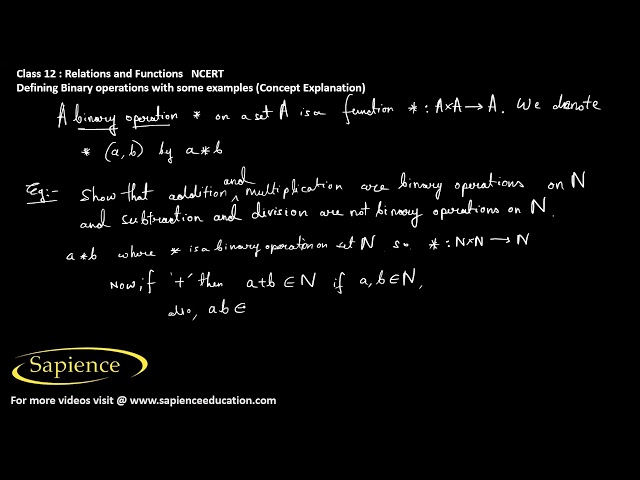 Class 12 : Relations and Functions NCERT
Defining Binary operations with some examples (Concept Explanation)
A binary operation * on a set A is a function * : A×A → A. We denote
* (a, b) by a * b
Eg:- Show that addition and multiplication are binary operations on N
and subtraction and division are not binary operations on N.
a * b where * is a binary operation on set N so * : N×N → N
Now, if '+' then a+b ∈ N if a, b ∈ N,
also, ab ∈
Sapience
For more videos visit @ www.sapienceeducation.com